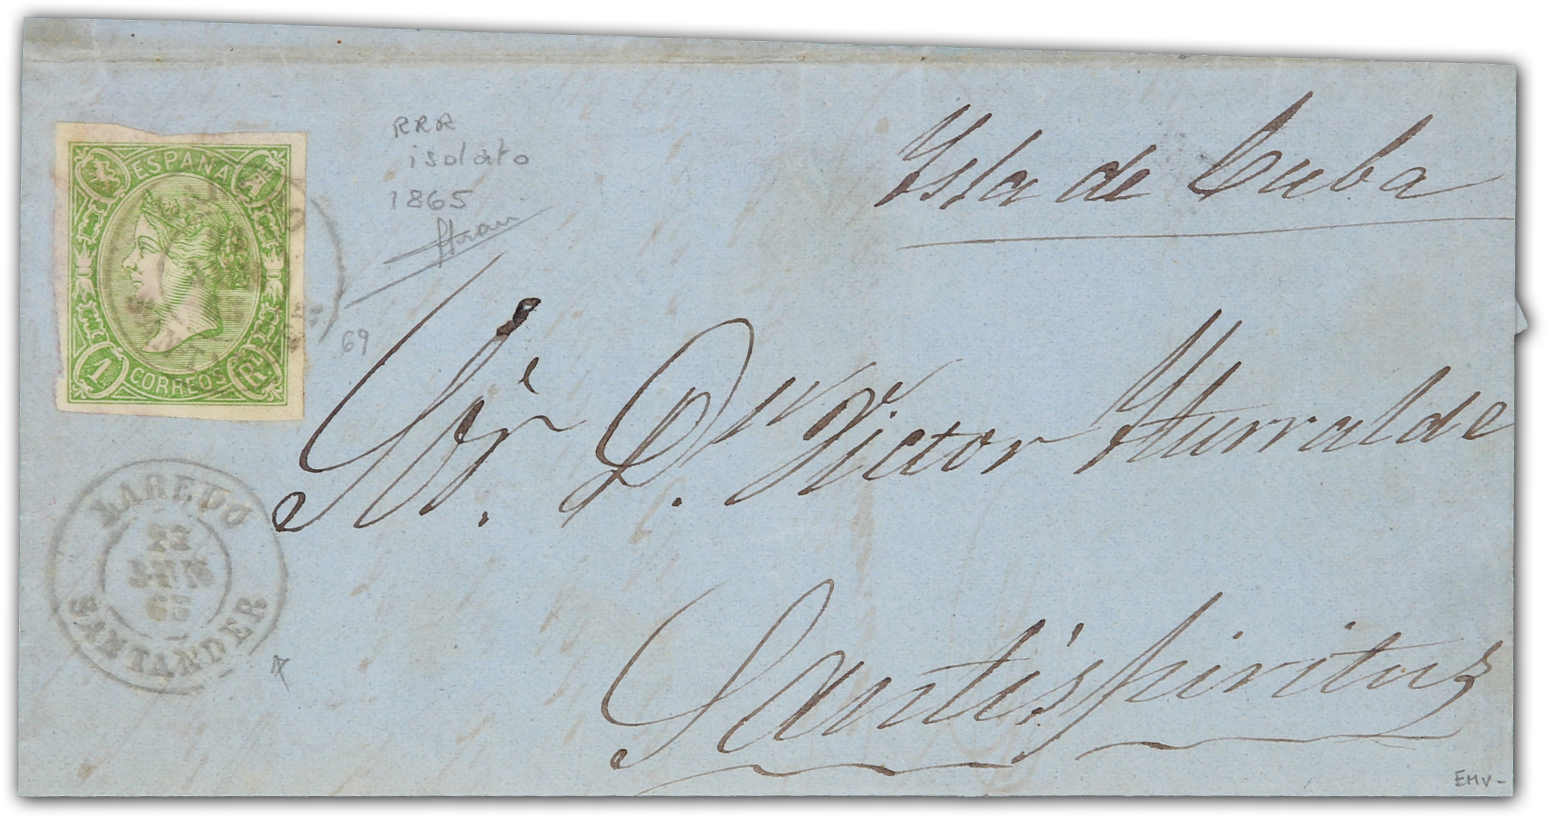 ESPAÑA
1 CORREOS Rl
RRR
isolato
1865
69
Ysla de Cuba
Sōr. Dn. Victor Yturralde
Santispiritus
LAREDO
22
65
SANTANDER
EMV-